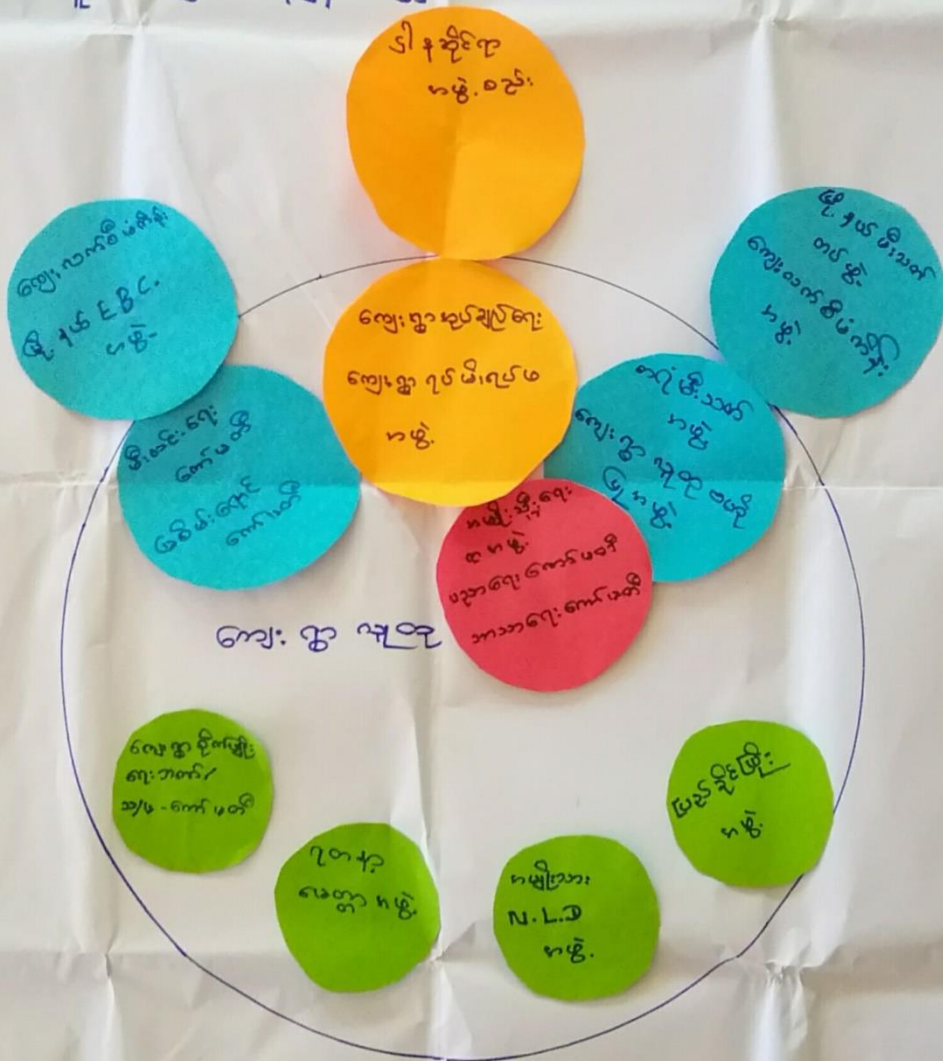 ဌါနဆိုင်ရာ
အဖွဲ့အစည်း
ကျေးလက်မီး
မြို့နယ် E.B.C.
အဖွဲ့
မြို့နယ်မီးသတ်
တပ်ဖွဲ့
ကျေးလက်စီမံကိန်း
အဖွဲ့
ကျေးရွာအုပ်ချုပ်ရေး
ကျေးရွာ ရပ်မိရပ်ဖ
အဖွဲ့
မီးလင်းရေး
ကော်မတီ
ကော်မတီ
အရံမီးသတ်
အဖွဲ့
ကျေးရွာ လူထု ဗဟို
ပြု အဖွဲ့
အမျိုးသမီးရေး
ရာ အဖွဲ့
ပညာရေး ကော်မတီ
ဘာသာရေး ကော်မတီ
ကျေးရွာ လူထု
ကျေးရွာ စိုက်ပျိုး
သ/မ-ကော်မတီ
ရတနာ့
မေတ္တာ အဖွဲ့
အမျိုးသား
N.L.D
အဖွဲ့
ပြည်ခိုင်ဖြိုး
အဖွဲ့